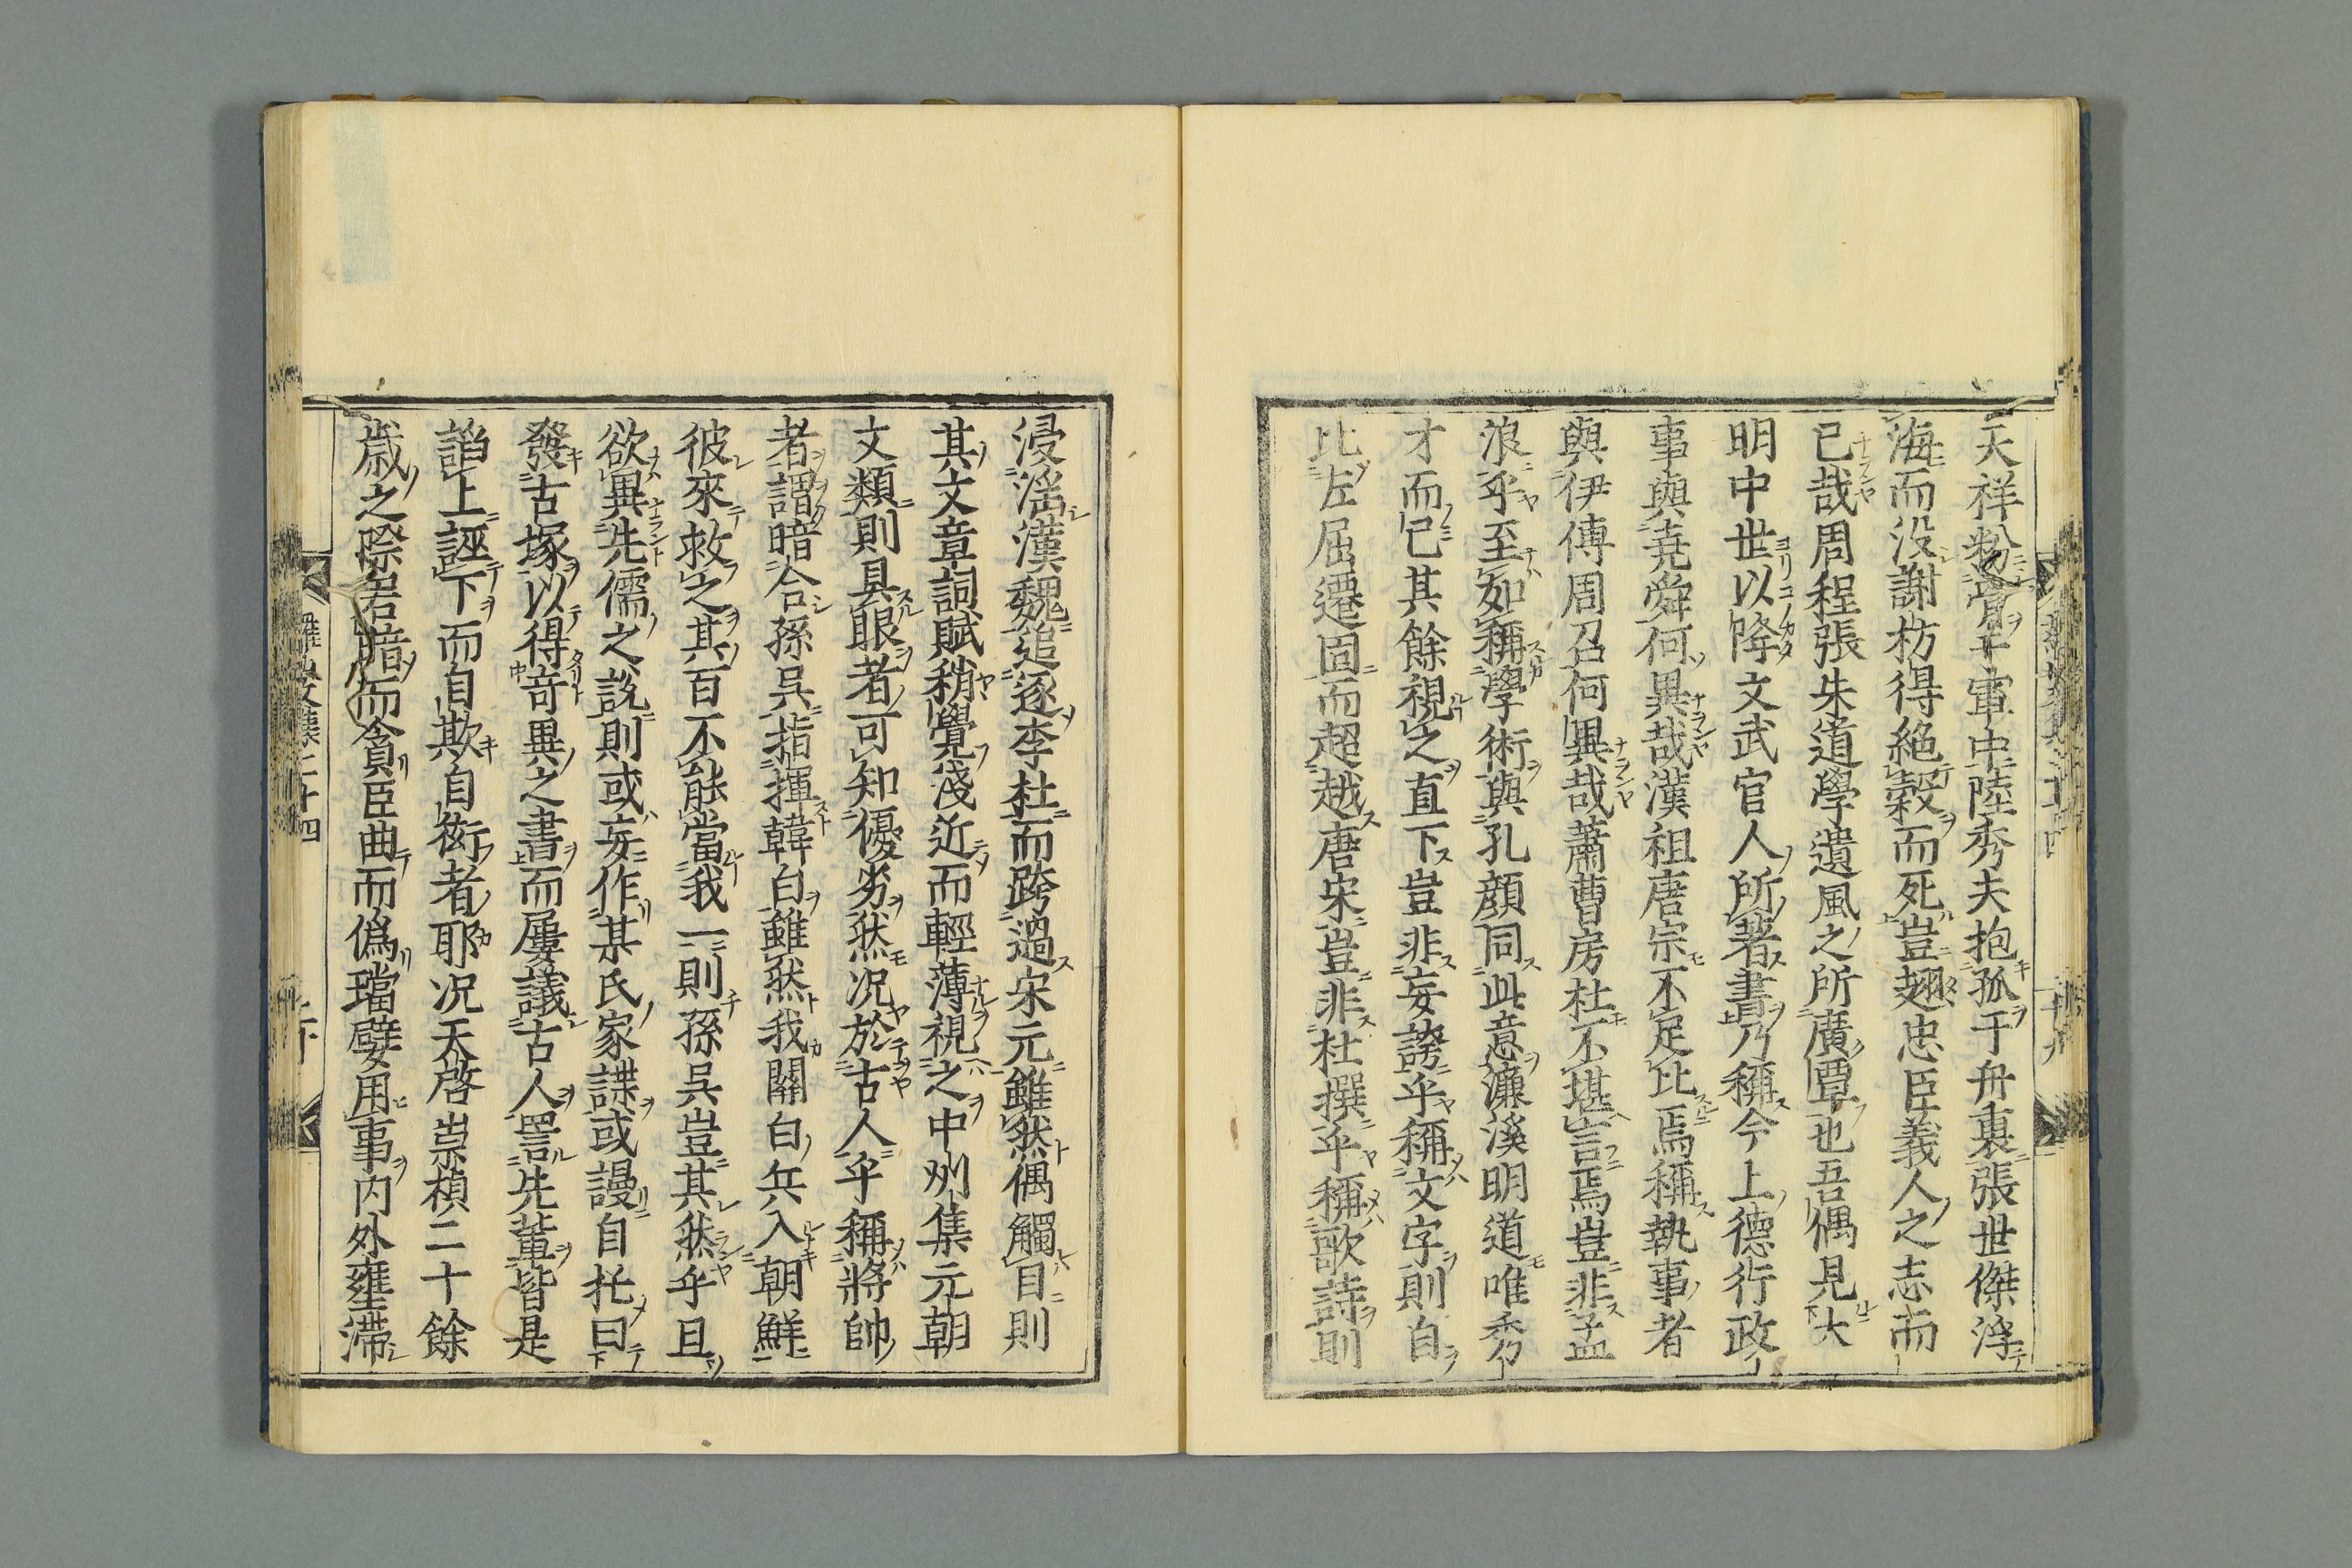 天祥粉齏于軍中陸秀夫抱孤于舟裏張世傑浮
海而没謝枋得絶穀而死豈翅忠臣義人之志而
已哉周程張朱道學遺風之所廣覃也吾偶見大
明中世以降文武官人所著書乃稱今上德行政
事與尭舜何異哉漢祖唐宗不足比焉稱執事者
與伊傅周召何異哉蕭曹房杜不堪言焉豈非孟
浪乎至如稱學術與孔顔同此意濂溪明道唯秀
才而已其餘視之直下豈非妄誇乎稱文字則自
比左屈遷固而超越唐宋豈非杜撰乎稱歌詩則
浸滛漢魏追逐李杜而跨過宋元雖然偶觸目則
其文章詞賦稍覺淺近而輕薄視之中州集元朝
文類則具眼者可知優劣然况於古人乎稱將帥
者謂暗合孫呉指揮韓白雖然我關白兵入朝鮮
彼來救之其百不能當我一則孫呉豈其然乎且
欲異先儒之説則或妄作某氏家諜或謾自托曰
發古塚以得竒異之書而屢議古人詈先輩皆是
諂上誣下而自欺自衒者耶况天啓崇楨二十餘
歳之際君暗而貪臣曲而僞璫嬖用事内外壅滞